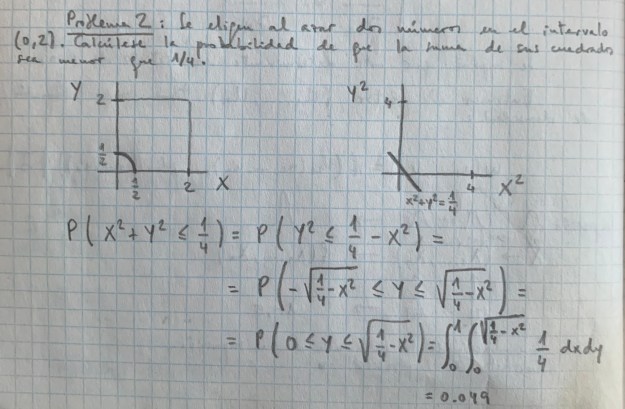 Problema 2: Se eligen al azar dos números en el intervalo
(0,2). Calcúlese la probabilidad de que la suma de sus cuadrados
sea menor que 1/4.
Y
2
1/2
1/2
2
X
Y²
4
4
X²
x²+y²=1/4
P(X²+Y² ≤ 1/4) = P(Y² ≤ 1/4 - X²) =
= P(-√(1/4-X²) ≤ Y ≤ √(1/4-X²)) =
= P(0 ≤ Y ≤ √(1/4-X²)) = ∫₀¹ ∫₀^√(1/4-x²) 1/4 dxdy
= 0.049